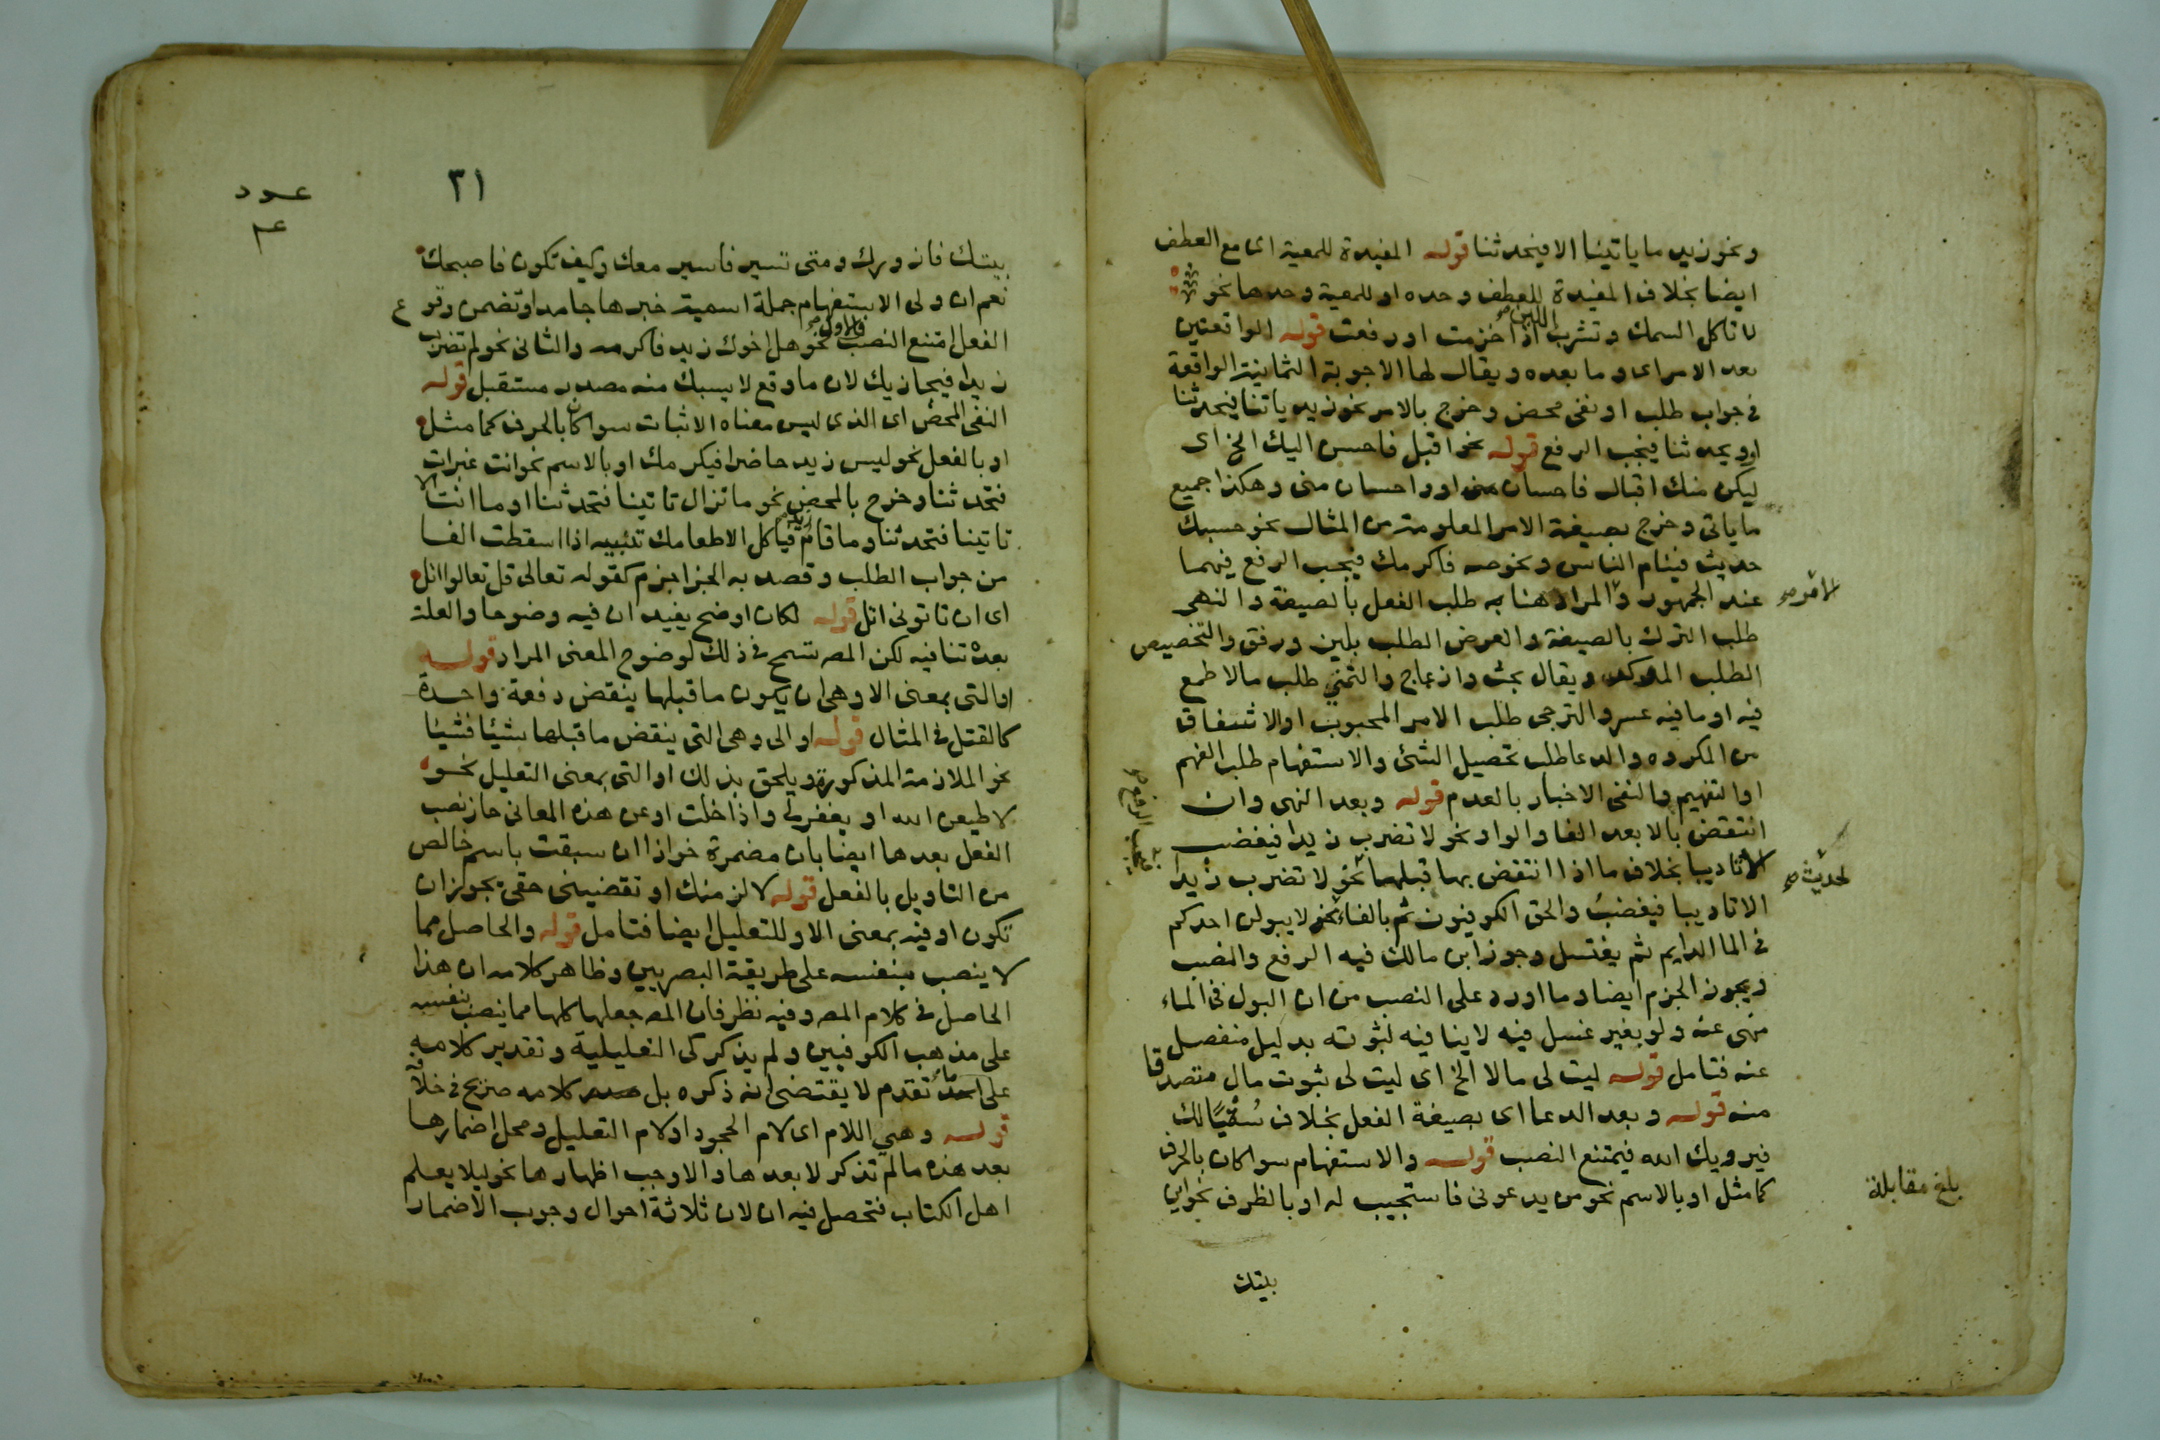 ونحو زيد ما ياتينا الا فيحدثنا قوله المفيدة للمعية اى مع العطف
ايضا بخلاف المفيدة للعطف وحده او للمعية وحدها نحو
لا تاكل السمك وتشرب اللبن اذا جزمت او رفعت قوله الواقعتين
بعد الامر اى وما بعده ويقال لها الاجوبة الثمانية الواقعة
فى جواب طلب او نفى محض وخرج بالامر نحو زيد ياتنا فيحدثنا
او ويحدثنا فيجب الرفع قوله نحو اقبل فاحسن اليك الخ اى
ليكن منك اقبال فاحسان منى او واحسان منى وهكذا جميع
ما ياتى وخرج بصيغة الامر المعلومة من المثال نحو حسبك
حديث فينام الناس ونحو صه فاكرمك فيجب الرفع فيهما
عند الجمهور والمراد هنا به طلب الفعل بالصيغة والنهى
بالامر صح
طلب الترك بالصيغة والعرض الطلب بلين ورفق والتحضيض
الطلب الموكد ويقال بحث وازعاج والتمنى طلب مالا طمع
فيه او ما فيه عسر والترجى طلب الامر المحبوب او الاشفاق
من المكروه والدعا طلب تحصيل الشئ والاستفهام طلب الفهم
او التفهيم والنفى الاخبار بالعدم قوله وبعد النهى وان
انتقض بالا بعد الفا والواو نحو لا تضرب زيدا فيغضب
فيجب الرفع صح
الا تاديبا بخلاف ما اذا انتقض بها قبلهما نحو لا تضرب زيدا
الا تاديبا فيغضب والحق الكوفيون ثم بالفاء نحو لا يبولن احدكم
لحديث صح
فى الما الدايم ثم يغتسل وجوز ابن مالك فيه الرفع والنصب
ويجوز الجزم ايضا وما اورد على النصب من ان البول فى الماء
منهى عنه ولو بغير غسل فيه لا ينافيه لثبوته بدليل منفصل
عنه فتامل قوله ليت لى مالا الخ اى ليت لى ثبوت مال متصدقا
منه قوله وبعد الدعا اى بصيغة الفعل بخلاف سقيا لك
فيرويك الله فيمتنع النصب قوله والاستفهام سوا كان بالحرف
كما مثل او بالاسم نحو من يدعونى فاستجيب له او بالظرف نحو اين
بلغ مقابلة
بيتك
٣١
بيتك فازورك ومتى تسير فاسير معك وكيف تكون فاصبحك
نعم ان ولى الاستفهام جملة اسمية خبرها جامد او تضمن وقوع
الفعل امتنع النصب فالاول نحو هل اخوك زيد فاكرمه والثانى نحو لم تضرب
زيدا فيجازيك لان ما وقع لا يسبك منه مصدر مستقبل قوله
النفى المحض اى الذى ليس معناه الاثبات سوا كان بالحرف كما مثل
او بالفعل نحو ليس زيد حاضرا فيكرمك او بالاسم نحو انت غير ات
فتحدثنا وخرج بالمحض نحو ما تزال تاتينا فتحدثنا او ما انت الا
تاتينا فتحدثنا وما قام زيد فياكل الا طعامك تنبيه اذا اسقطت الفا
من جواب الطلب وقصد به الجزا جزم كقوله تعالى قل تعالوا اتل
اى ان تاتونى اتل قوله لكان اوضح يفيد ان فيه وضوحا والعلة
بعده تنافيه لكن المص تسمح فى ذلك لوضوح المعنى المراد قوله
او التى بمعنى الا وهى ان يكون ما قبلها ينقض دفعة واحدة
كالقتل فى المثال قوله او الى وهى التى ينقض ما قبلها شيئا فشيئا
نحو الملازمة المذكورة ويلحق بذلك او التى بمعنى التعليل نحو
لاطيعن الله او يغفر لى واذا خلت او عن هذه المعانى جاز نصب
الفعل بعدها ايضا بان مضمرة جوازا ان سبقت باسم خالص
من التاويل بالفعل قوله لا لزمنك او تقضينى حقى يجوز ان
تكون او فيه بمعنى الا وللتعليل ايضا فتامل قوله والحاصل مما
لا ينصب بنفسه على طريقة البصريين وظاهر كلامه ان هذا
الحاصل فى كلام المص وفيه نظر فان المص جعلها كلها مما ينصب بنفسه
على مذهب الكوفيين ولم يذكر كى التعليلية وتقدير كلامه
على ما تقدم لا يقتضى انه ذكره بل كلامه صريح فى خلافه
قوله وهى اللام اى لام الجحود او لام التعليل ومحل اضمارها
بعد هذه ما لم تذكر لا بعدها والا وجب اظهارها نحو ليلا يعلم
اهل الكتاب فتحصل فيه ان لان ثلاثة احوال وجوب الاضمار